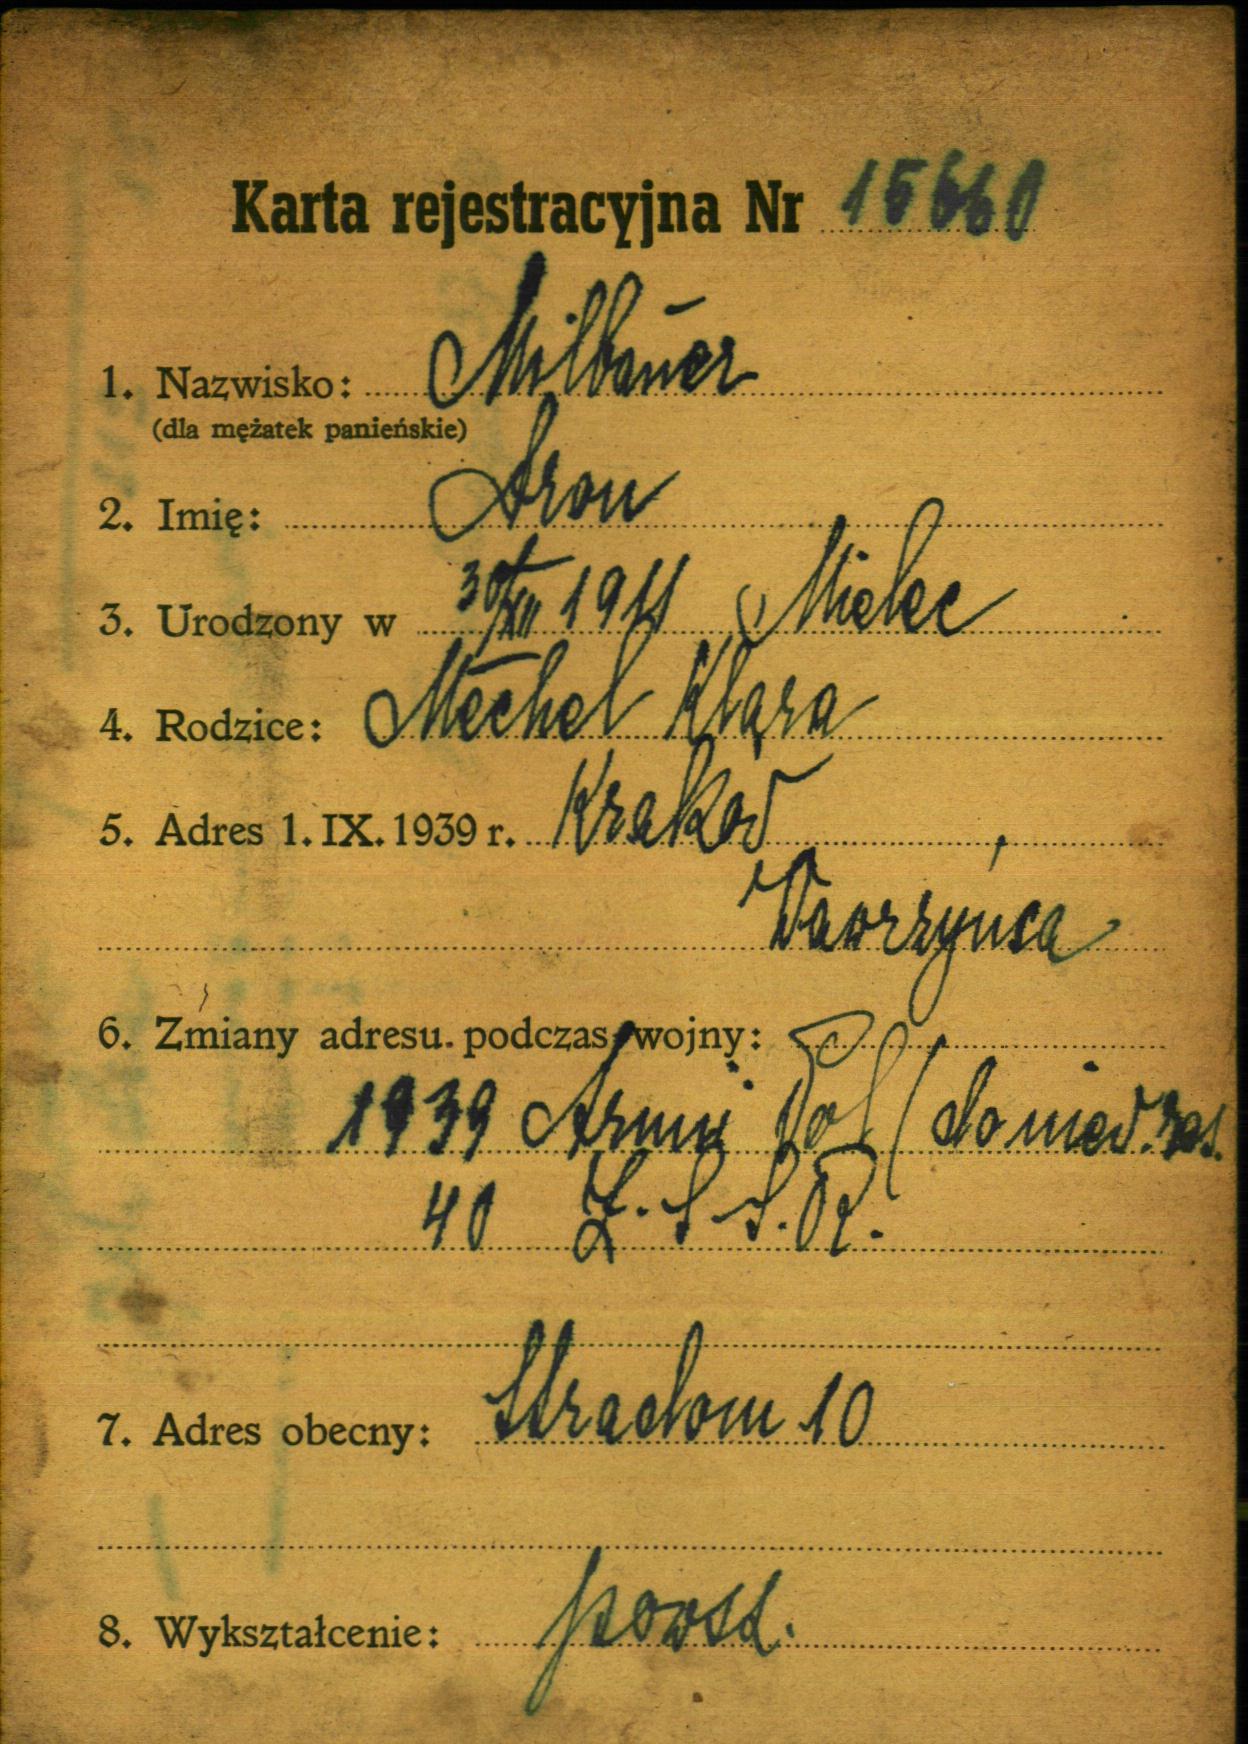 Karta rejestracyjna Nr 15660
1. Nazwisko: Milbauer
(dla mężatek panieńskie)
2. Imię: Aron
3. Urodzony w 30/XII 1911 Mielec
4. Rodzice: Mechel Klara
5. Adres 1. IX. 1939 r. Kraków
Wawrzyńca
6. Zmiany adresu podczas wojny:
1939 Armii Pol (do niew.
40 Z.S.S.R.
7. Adres obecny: Stradom 10
8. Wykształcenie: powsz.